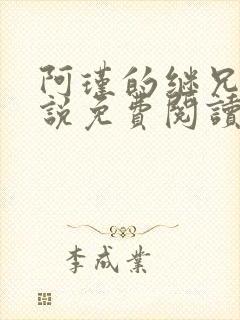 阿瑾的继兄
說免費閱讀
李成業